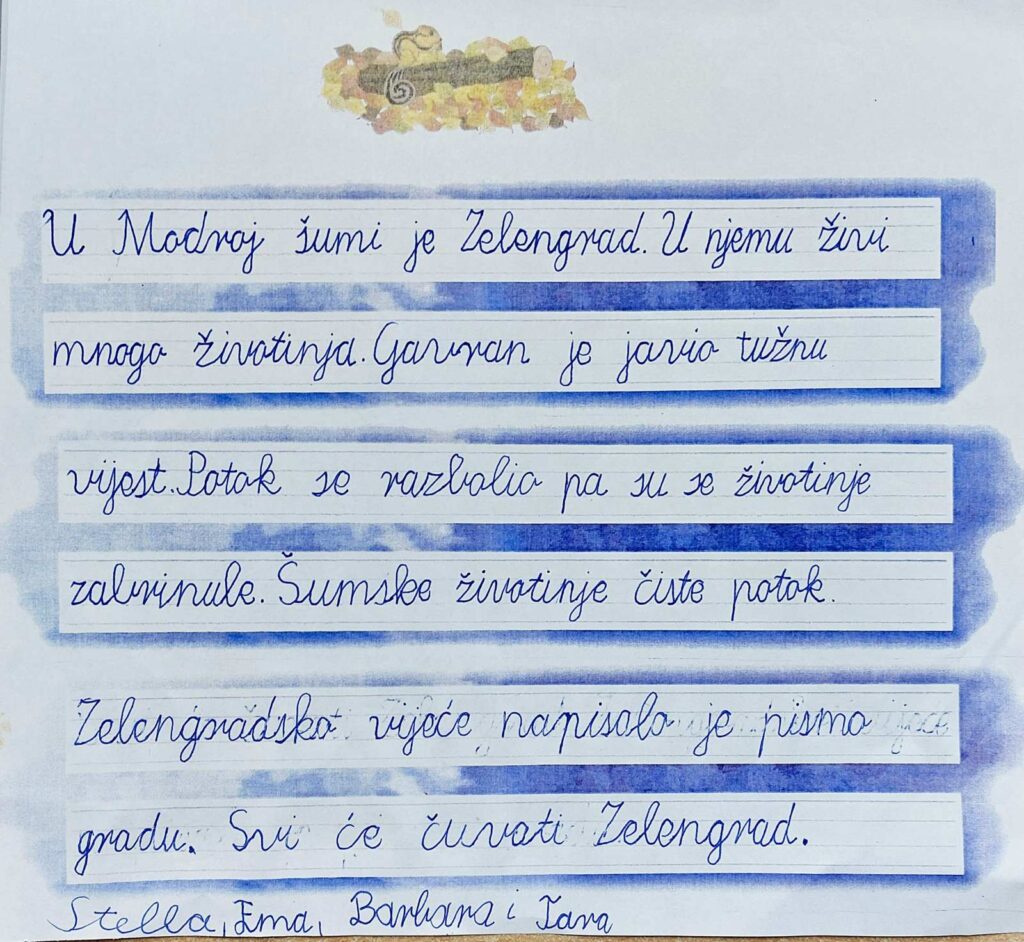 U Modroj šumi je Zelengrad. U njemu živi
mnogo životinja. Gavran je javio tužnu
vijest. Potok se razbolio pa su se životinje
zabrinule. Šumske životinje čiste potok.
Zelengradsko vijeće napisalo je pismo
gradu. Svi će čuvati Zelengrad.
Stella, Ema, Barbara i Tara